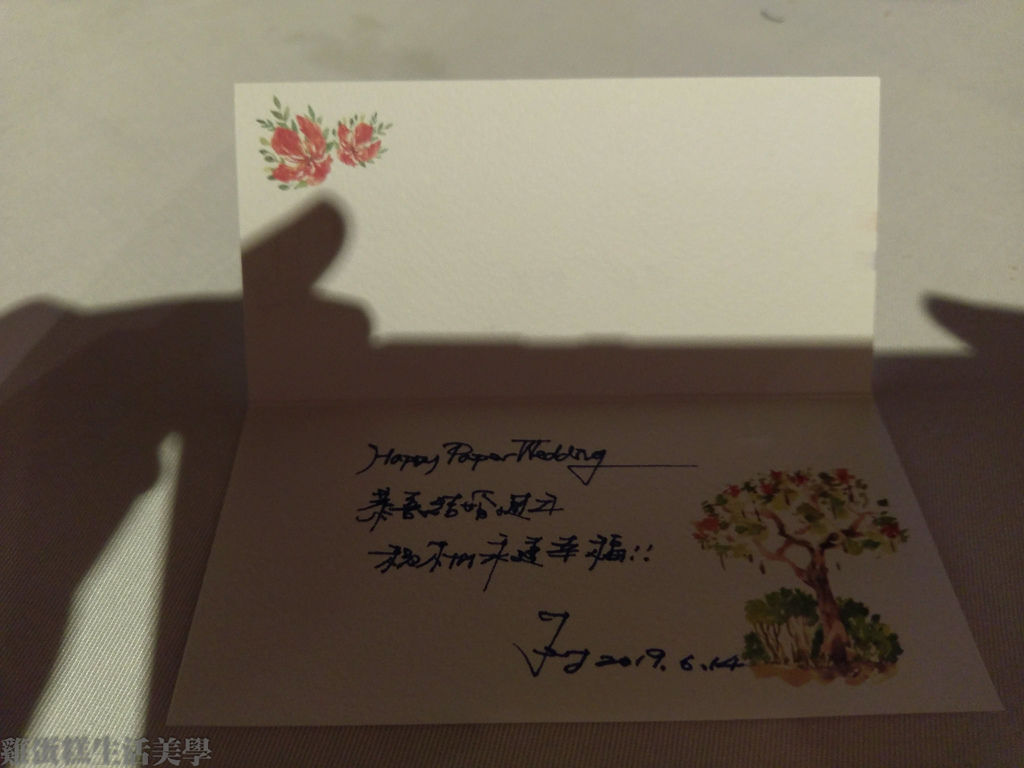 Happy Paper Wedding
恭喜結婚週年
祝你們永遠幸福!!
2019.6.14
雞蛋糕生活美學